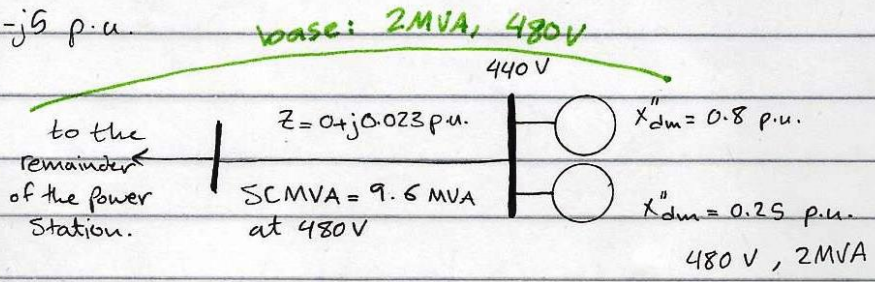 -j5 p.u.
base: 2MVA, 480V
440 V
to the
remainder
of the power
Station.
Z = 0+j0.023 p.u.
SCMVA = 9.6 MVA
at 480V
X"dm = 0.8 p.u.
X"dm = 0.25 p.u.
480 V, 2MVA